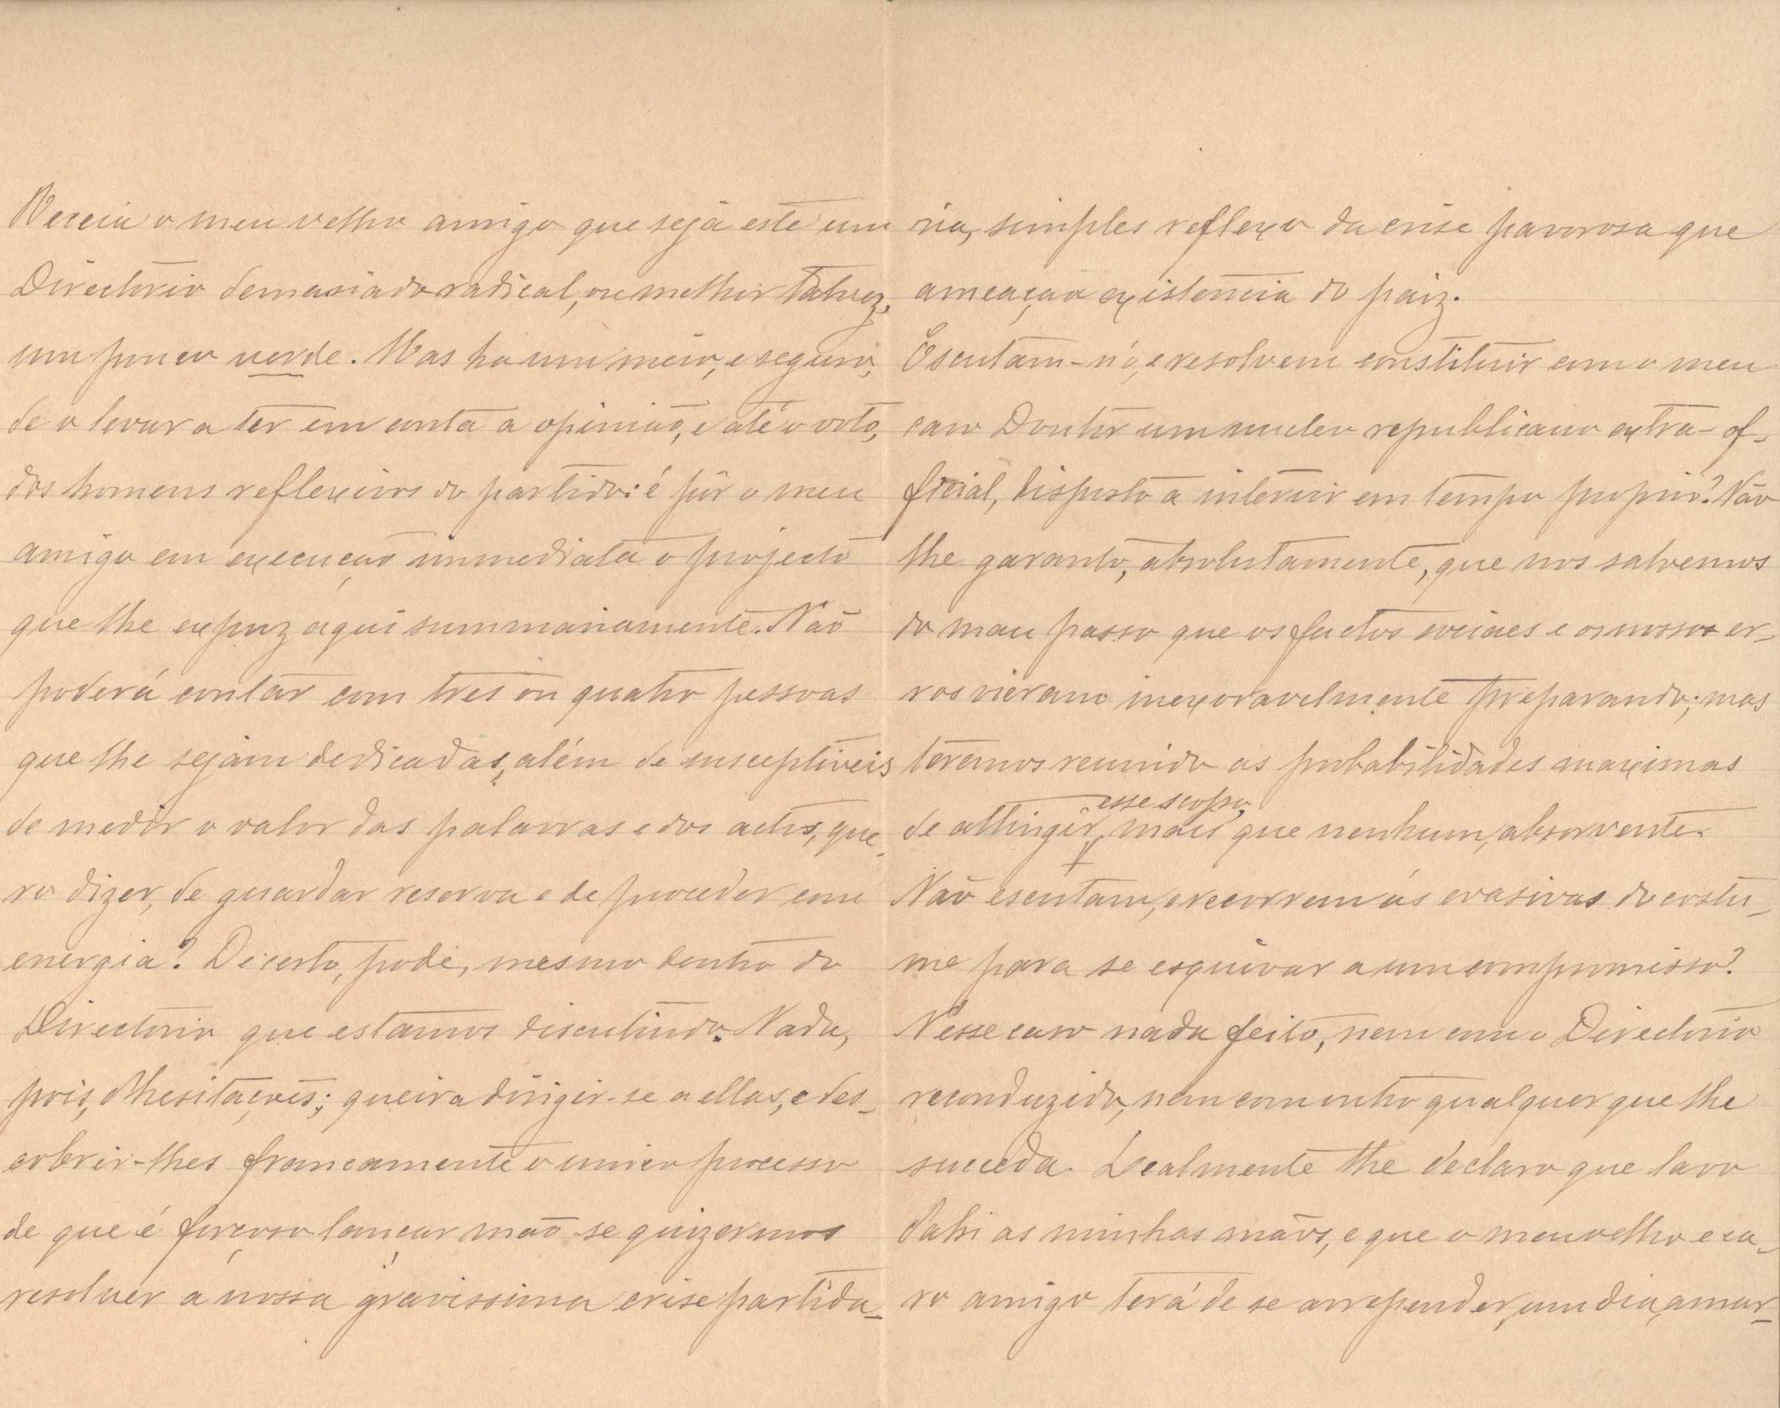 Receia o meu velho amigo que seja este um
Directorio demasiado radical, ou melhor talvez,
um pouco verde. Mas ha um meio, e seguro,
de o levar a ter em conta a opinião, e até o voto,
dos homens reflexivos do partido: é pôr o meu
amigo em execução immediata o projecto
que lhe expuz aqui summariamente. Não
poderá contar com tres ou quatro pessoas
que lhe sejam dedicadas, além de susceptiveis
de medir o valor das palavras e dos actos, que-
ro dizer, de guardar reserva e de proceder com
energia? Decerto, pode, mesmo dentro do
Directorio que estamos discutindo. Nada,
pois, d'hesitações; queira dirigir-se a ellas, e des-
cobrir-lhes francamente o unico processo
de que é forçoso lançar mão se quizermos
resolver a nossa gravissima crise partida-
ria, simples reflexo da crise pavorosa que
ameaça a existencia do paiz.
Escutam-n'o, e resolvem constituir com o meu
caro Doutor um nucleo republicano extra-of-
ficial, disposto a intervir em tempo proprio? Não
lhe garanto, absolutamente, que nos salvemos
do mau passo que os factos sociaes e os nossos er-
ros vieram inexoravelmente preparando; mas
teremos reunido as probabilidades maximas
de attingir esse scopo, mais que nenhum, absorvente.
Não escutam, e recorrem ás evasivas do costu-
me para se esquivar a um compromisso?
Nesse caso nada feito, nem com o Directorio
reconduzido, nem com outro qualquer que lhe
succeda. Lealmente lhe declaro que lavo
dahi as minhas mãos, e que o meu velho e ca-
ro amigo terá de se arrepender, um dia, amar-